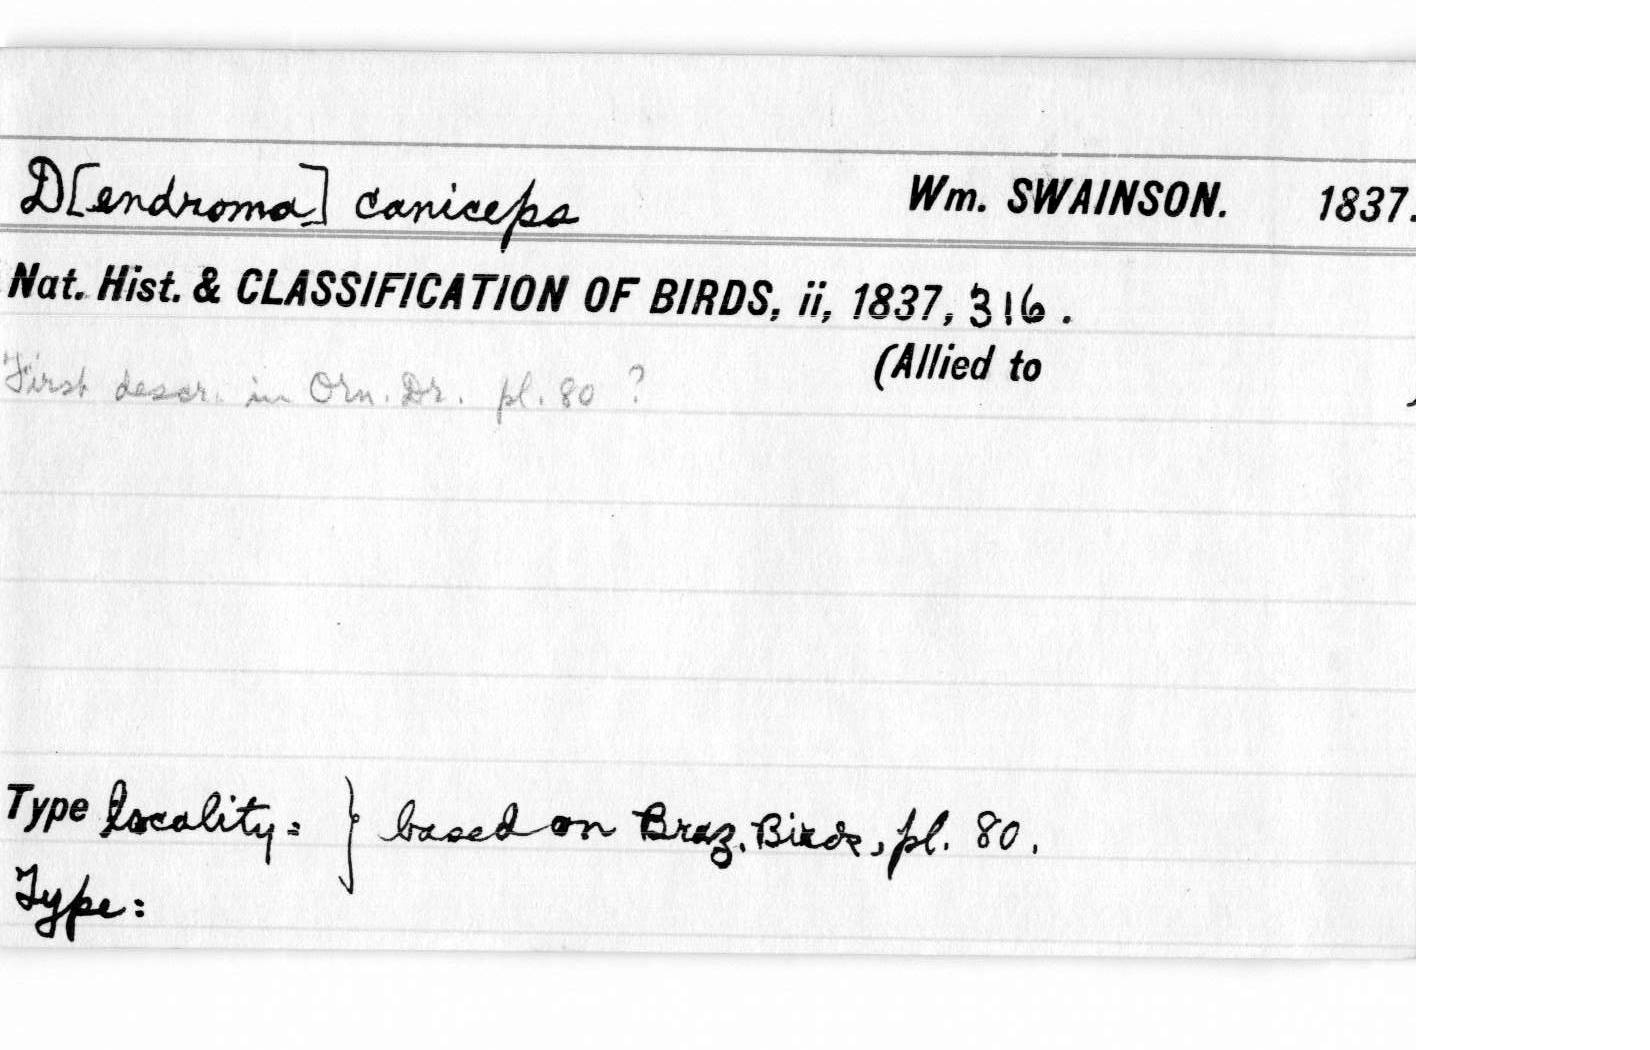 D[endroma] caniceps Wm. SWAINSON. 1837.
Nat. Hist. & CLASSIFICATION OF BIRDS, ii, 1837, 316.
(Allied to
First descr. in Orn. Dr. pl. 80 ? )
Type locality: } based on Braz. Birds, pl. 80.
Type: